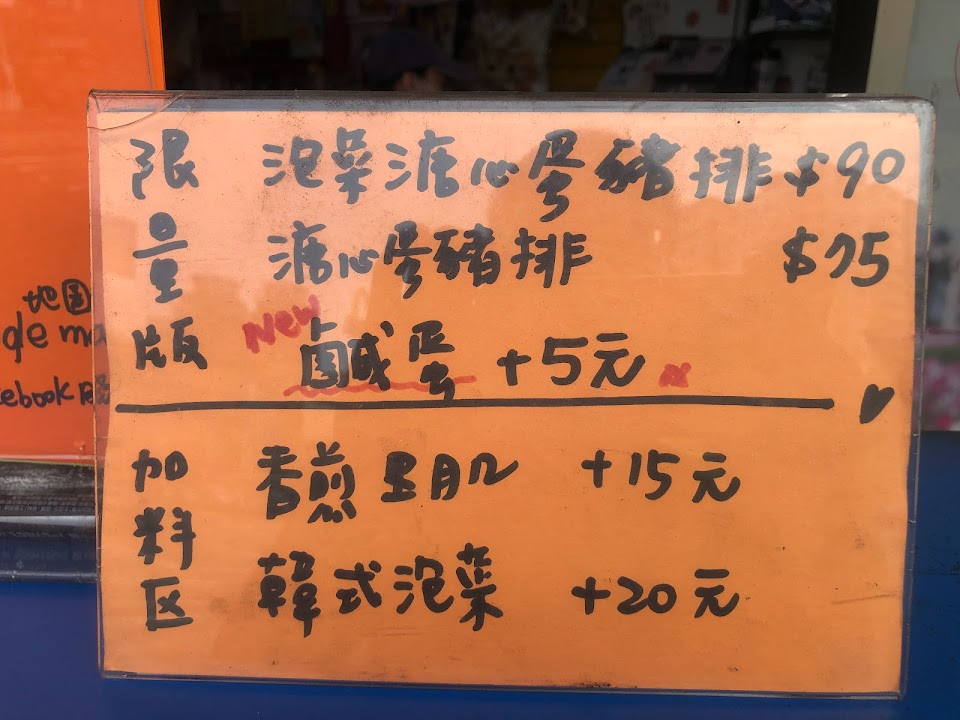 限量版
泡菜溏心蛋豬排 $90
溏心蛋豬排 $75
New 鹹蛋 +5元
加料区
香煎里肌 +15元
韓式泡菜 +20元
地圖